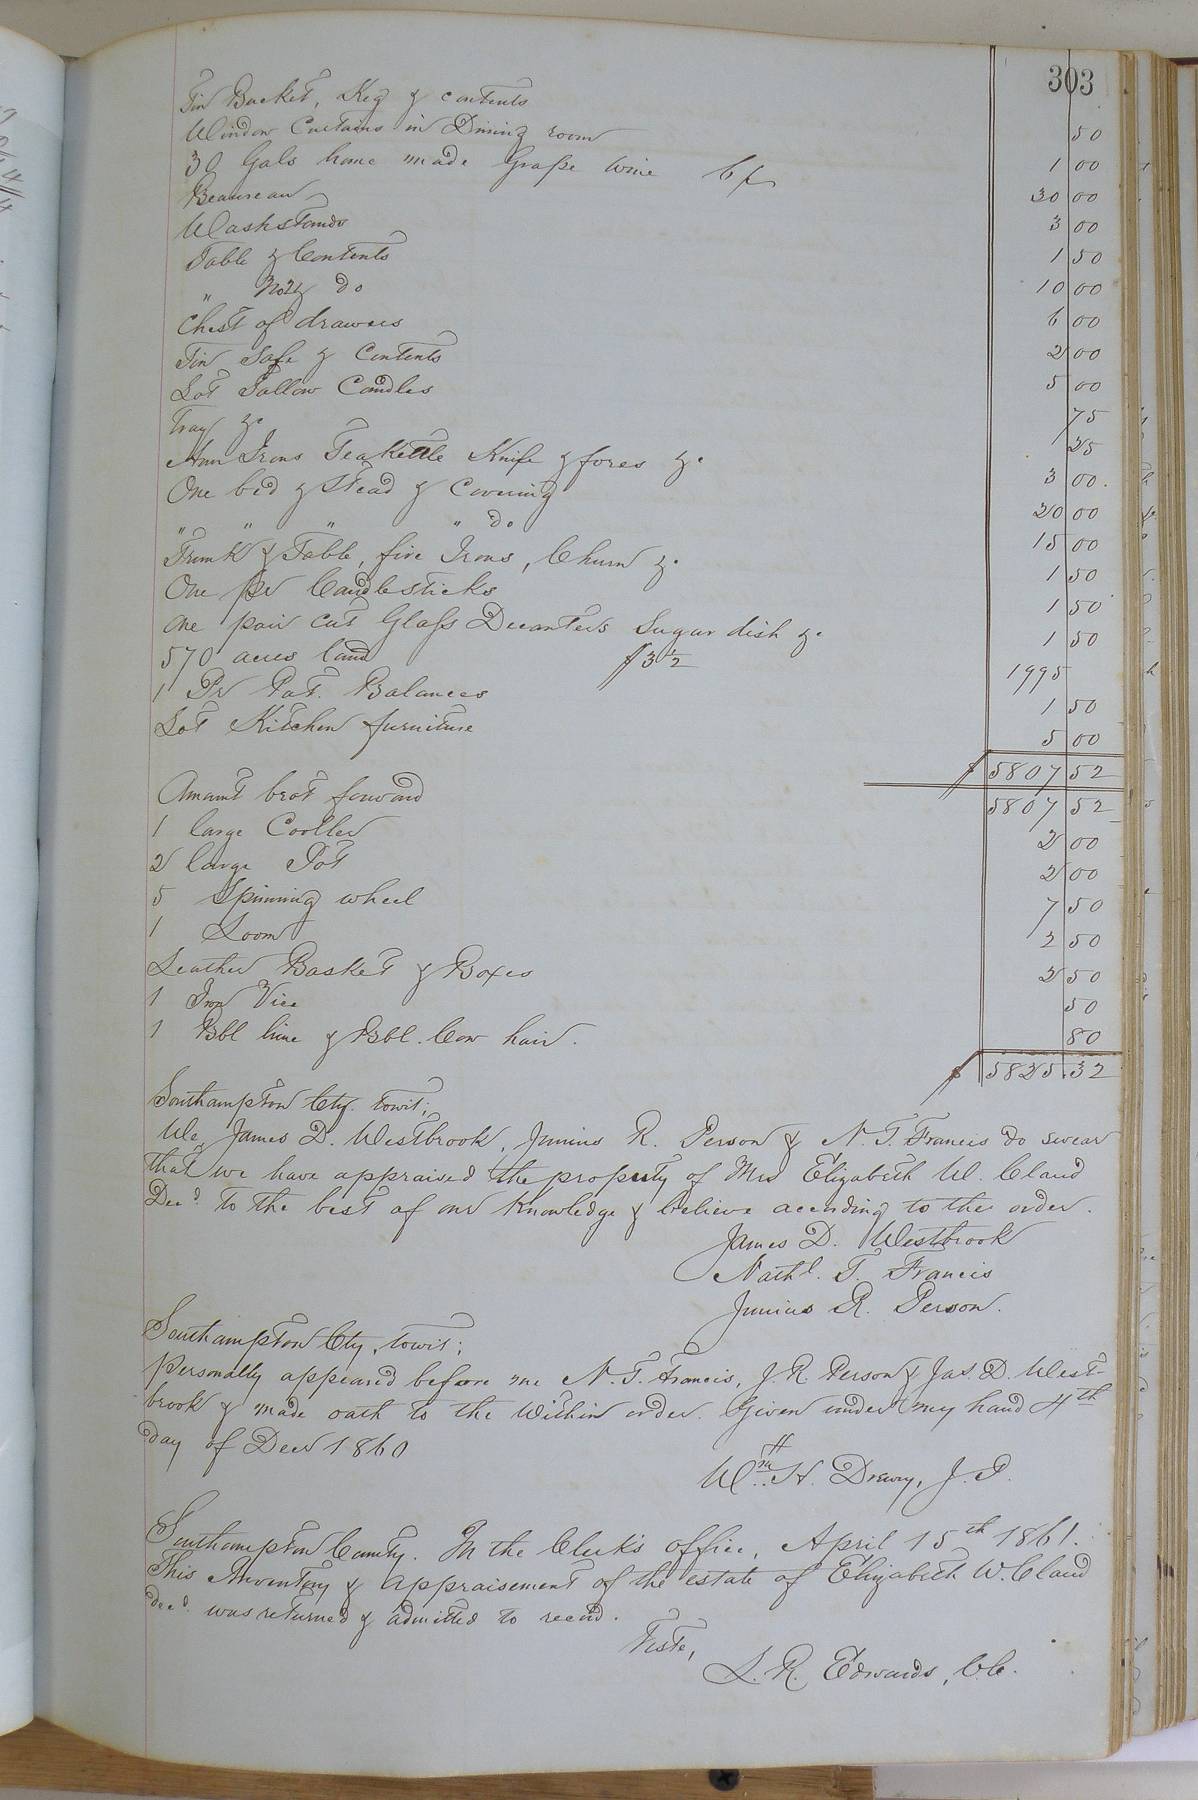 303
Tin Bucket, Keg & contents 50
Window Curtains in Dining room 1 00
30 Gals home made Grape wine 6/ 30 00
Beaureau 3 00
Washstands 1 50
Table & Contents 10 00
" No 2 & do 6 00
Chest of drawers 2 00
Tin Safe & Contents 5 00
Lot Tallow Candles 75
Tray &c 25
Irons Teakettle Knife & &c 3 00
One bed & Stead & Covering 20 00
" " " " do 15 00
Trunk & Table, fire Irons, Churn &c 1 50
One pr Candlesticks 1 50
One pair cut Glass Decanters Sugar dish &c 1 50
570 acres land $3 1/2 1995
1 Pr Pat. Balances 1 50
Lot Kitchen furniture 5 00
$ 5807 52
Amount brot forward 5807 52
1 large Cooller 2 00
2 large Pot 2 00
5 Spinning wheel 7 50
1 Loom 2 50
Leather Basket & Boxes 2 50
1 Iron Vice 50
1 Bbl lime & Bbl. Cow hair. 80
$ 5825.32
Southampton Cty. towit;
We, James D. Westbrook, Junius R. Person & N. T. Francis do swear
that we have appraised the property of Mrs Elizabeth W. Claud
Decd. to the best of our Knowledge & believe according to the order.
James D. Westbrook
Nathl. T. Francis
Junius R. Person.
Southampton Cty, towit;
Personally appeared before me N. T. Francis, J. R. Person & Jas. D. West-
brook & made oath to the Within order. Given under my hand 4th
day of Decr 1860
Wm. H. Drewry, J. P.
Southampton County. In the Clerk's office, April 15th 1861.
This Inventory & appraisement of the estate of Elizabeth W. Claud
decd. was returned & admitted to record.
Teste,
L. R. Edwards, C. C.